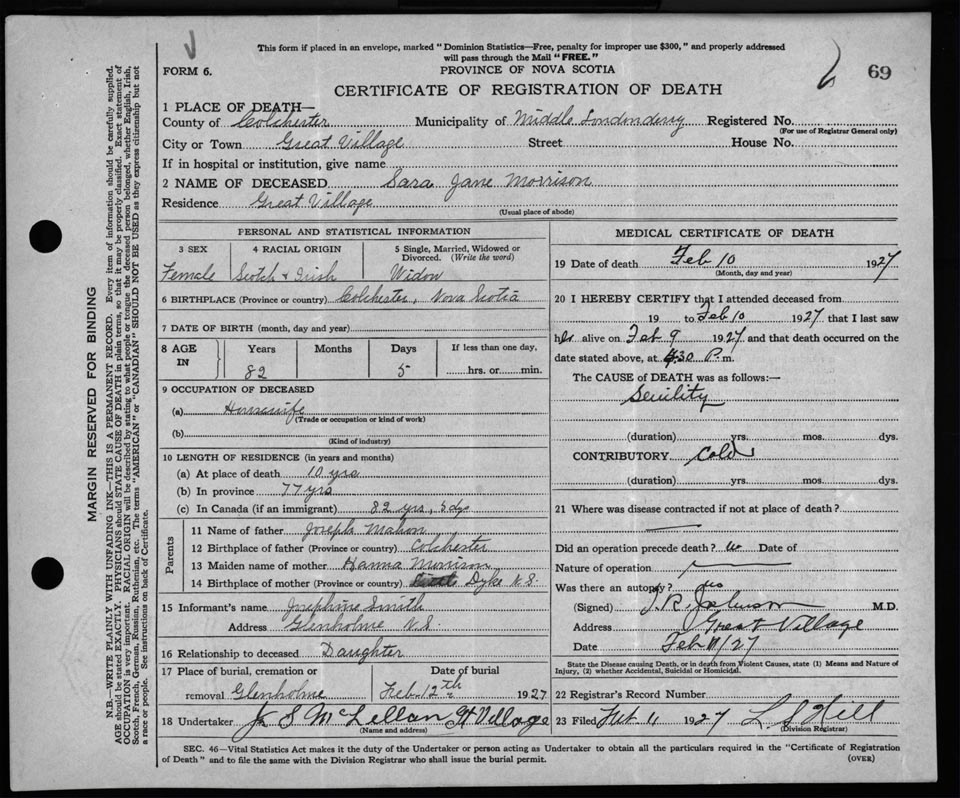 This form if placed in an envelope, marked "Dominion Statistics—Free, penalty for improper use $300," and properly addressed
will pass through the Mail "FREE."
FORM 6.
PROVINCE OF NOVA SCOTIA
69
CERTIFICATE OF REGISTRATION OF DEATH
1 PLACE OF DEATH—
County of Colchester Municipality of Middle Londonderry Registered No.
(For use of Registrar General only)
City or Town Great Village Street House No.
If in hospital or institution, give name
2 NAME OF DECEASED Sara Jane Morrison
Residence Great Village
(Usual place of abode)
PERSONAL AND STATISTICAL INFORMATION
3 SEX 4 RACIAL ORIGIN 5 Single, Married, Widowed or
Divorced. (Write the word)
Female Scotch & Irish Widow
6 BIRTHPLACE (Province or country) Colchester, Nova Scotia
7 DATE OF BIRTH (month, day and year)
8 AGE IN Years Months Days If less than one day,
82 5 hrs. or min.
9 OCCUPATION OF DECEASED
(a) Housewife
(Trade or occupation or kind of work)
(b)
(Kind of industry)
10 LENGTH OF RESIDENCE (in years and months)
(a) At place of death 10 yrs
(b) In province 77 yrs
(c) In Canada (if an immigrant) 82 yrs, 5 dys
Parents
11 Name of father Joseph Mahon
12 Birthplace of father (Province or country) Colchester
13 Maiden name of mother Hanna Morrison
14 Birthplace of mother (Province or country) Dyke N.S.
15 Informant's name Josephine Smith
Address Glenholme N.S.
16 Relationship to deceased Daughter
17 Place of burial, cremation or Date of burial
removal Glenholme Feb. 12th 1927
18 Undertaker J. S McLellan Gt Village
(Name and address)
MEDICAL CERTIFICATE OF DEATH
19 Date of death Feb 10 1927
(Month, day and year)
20 I HEREBY CERTIFY that I attended deceased from
19 to Feb 10 1927 that I last saw
her alive on Feb 9 1927 and that death occurred on the
date stated above, at 30 P.m.
The CAUSE of DEATH was as follows:—
Senility
(duration) yrs. mos. dys.
CONTRIBUTORY Cold
(duration) yrs. mos. dys.
21 Where was disease contracted if not at place of death?
Did an operation precede death? Date of
Nature of operation
Was there an autopsy?
(Signed) J. R. Johnson M.D.
Address Great Village
Date Feb 11/27
State the Disease causing Death, or in death from Violent Causes, state (1) Means and Nature of
Injury, (2) whether Accidental, Suicidal or Homicidal.
22 Registrar's Record Number
23 Filed Feb 11 1927 L S Hill
(Division Registrar)
SEC. 46—Vital Statistics Act makes it the duty of the Undertaker or person acting as Undertaker to obtain all the particulars required in the "Certificate of Registration
of Death" and to file the same with the Division Registrar who shall issue the burial permit. (OVER)
MARGIN RESERVED FOR BINDING
N.B.—WRITE PLAINLY WITH UNFADING INK—THIS IS A PERMANENT RECORD. Every item of information should be carefully supplied.
AGE should be stated EXACTLY. PHYSICIANS should STATE CAUSE OF DEATH in plain terms, so that it may be properly classified. Exact statement of
OCCUPATION is very important. RACIAL ORIGIN will be described by stating to what people or tongue the deceased person belonged, whether English, Irish,
Scotch, French, German, Russian, Ruthenian, etc. The terms "AMERICAN" or "CANADIAN" SHOULD NOT BE USED as they express citizenship but not
a race or people. See instructions on back of Certificate.